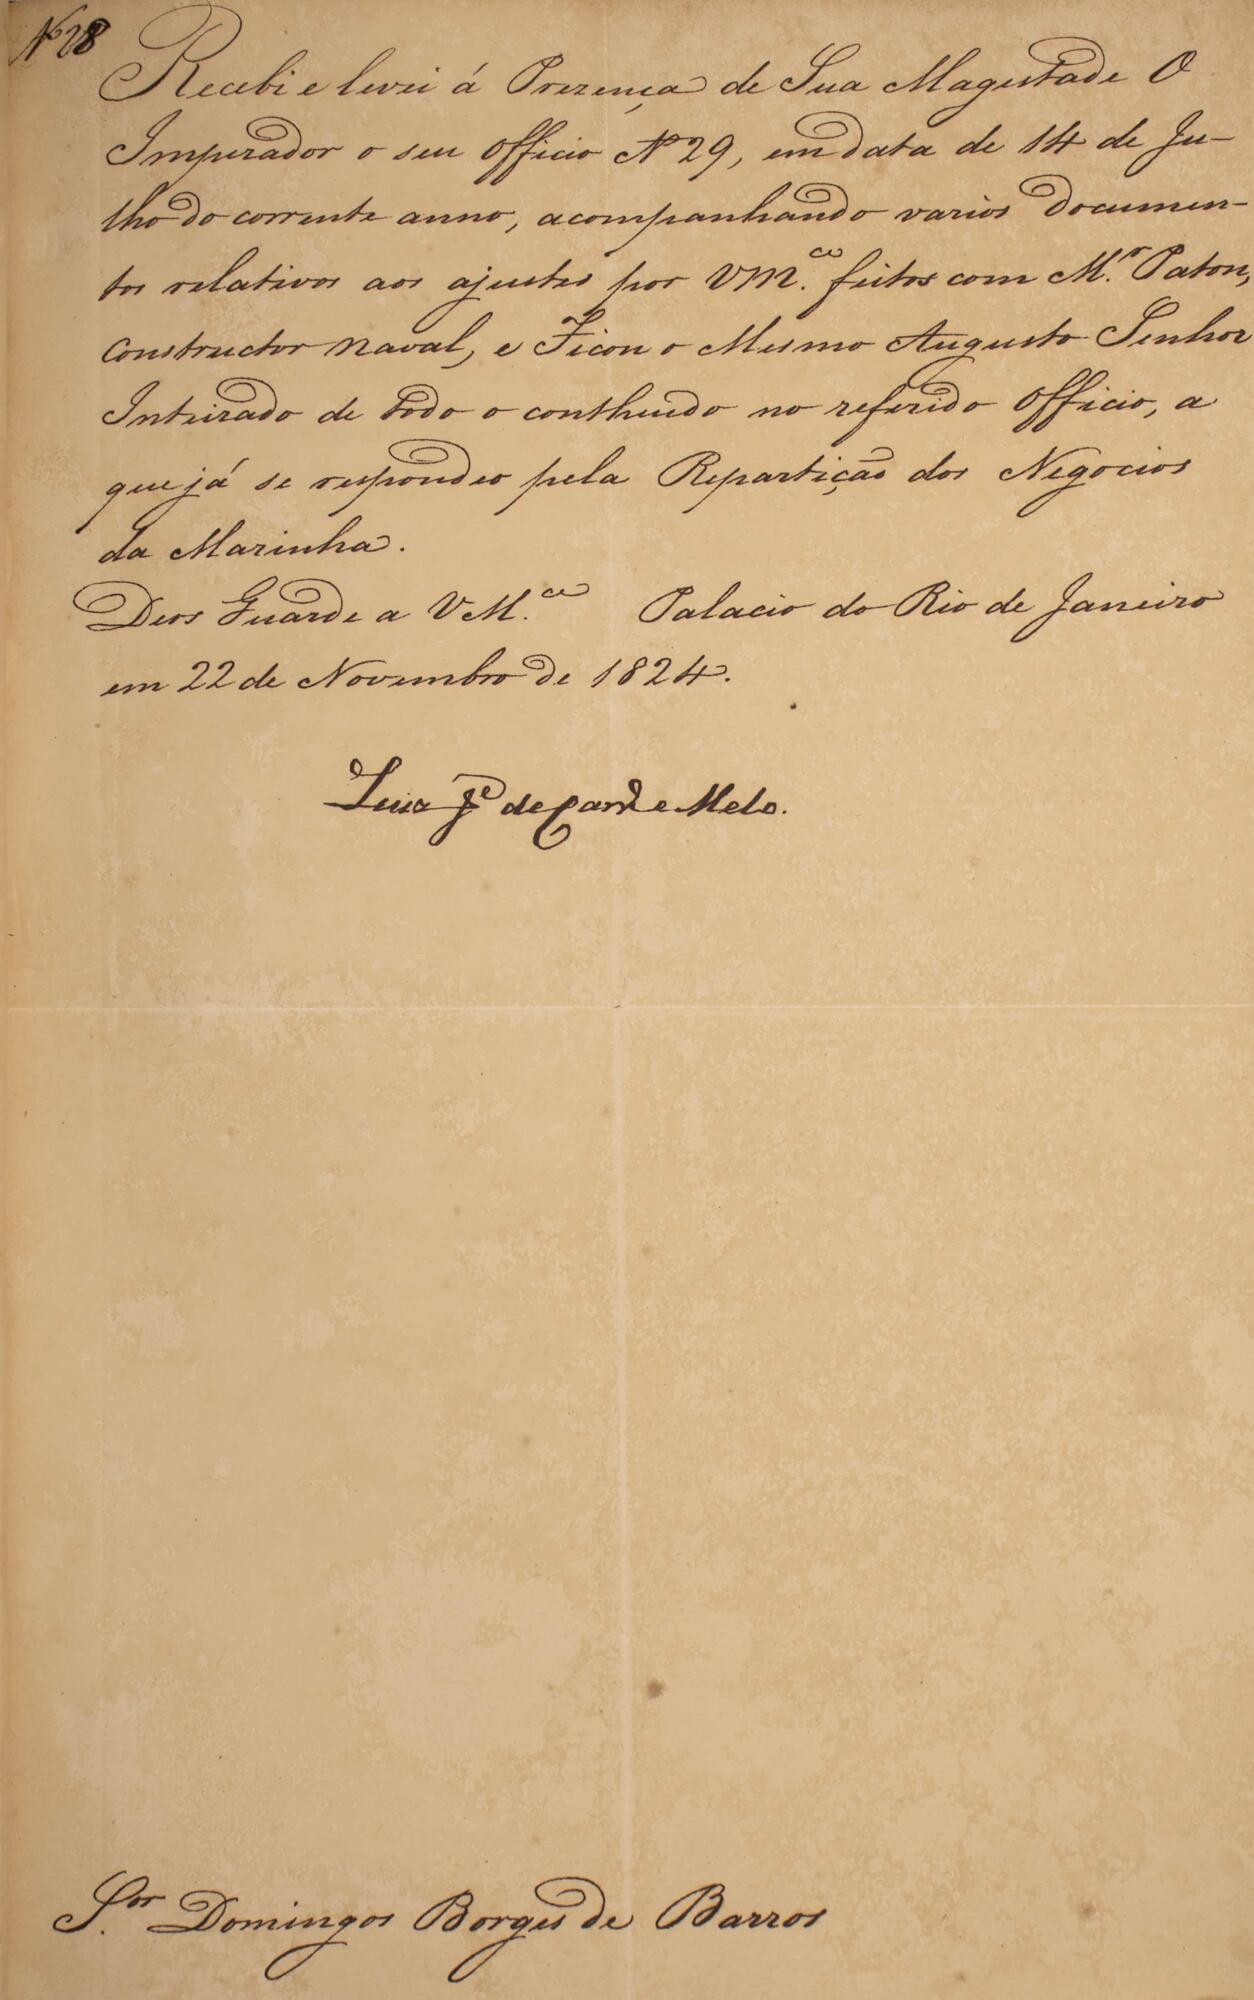 Nº 28
Recebi e levei á Prezença de Sua Magestade O
Imperador o seu Officio Nº 29, em data de 14 de Ju-
lho do corrente anno, acompanhando varios documen-
tos relativos aos ajustes por VM.ce feitos com M.r Paton,
Constructor Naval, e Ficou o Mesmo Augusto Senhor
Inteirado de todo o contheudo no referido Officio, a
que já se respondeo pela Repartição dos Negocios
da Marinha.
Deos Guarde a VM.ce Palacio do Rio de Janeiro
em 22 de Novembro de 1824.
Luiz J.e de Carv.o e Melo.
S.or Domingos Borges de Barros